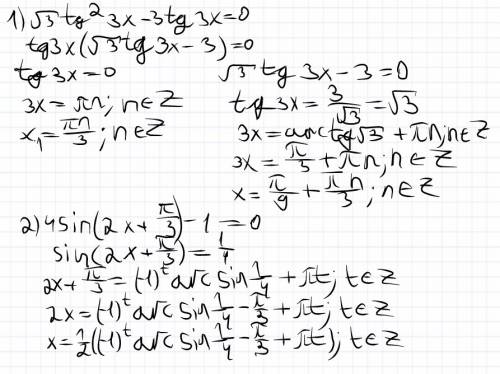 1) √3 tg² 3x - 3tg 3x = 0
tg3x(√3 tg 3x - 3) = 0
tg 3x = 0 √3 tg 3x - 3 = 0
3x = πn; n∈Z tg 3x = 3/√3 = √3
x₁ = πn/3; n∈Z 3x = arctg√3 + πn; n∈Z
3x = π/3 + πn; n∈Z
x = π/9 + πn/3; n∈Z
2) 4sin(2x + π/3) - 1 = 0
sin(2x + π/3) = 1/4
2x + π/3 = (-1)ᵗ arcsin 1/4 + πt; t∈Z
2x = (-1)ᵗ arcsin 1/4 - π/3 + πt; t∈Z
x = 1/2((-1)ᵗ arcsin 1/4 - π/3 + πt); t∈Z